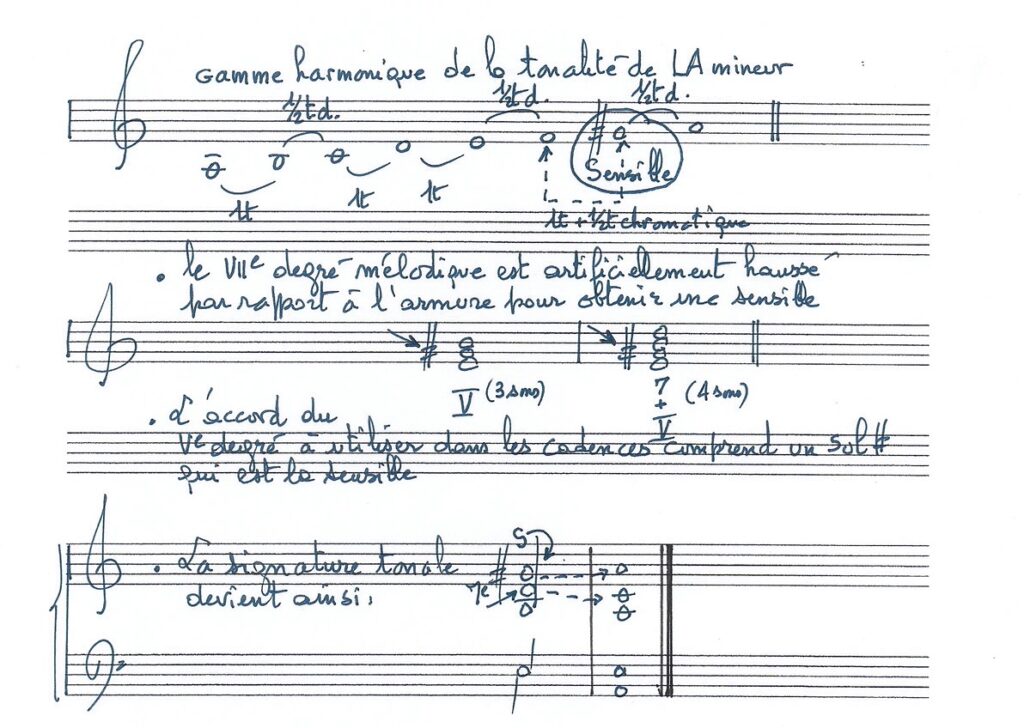 Gamme harmonique de la tonalité de LA mineur
1/2td. 1/2td. 1/2td.
Sensible
1t 1t 1t
1t + 1/2t chromatique
• le VIIe degré mélodique est artificiellement haussé
par rapport à l'armure pour obtenir une sensible
V (3 sons) 7 + V (4 sons)
• L'accord du
Ve degré à utiliser dans les cadences comprend un Sol #
qui est la sensible
S
• La signature tonale
7e
devient ainsi :